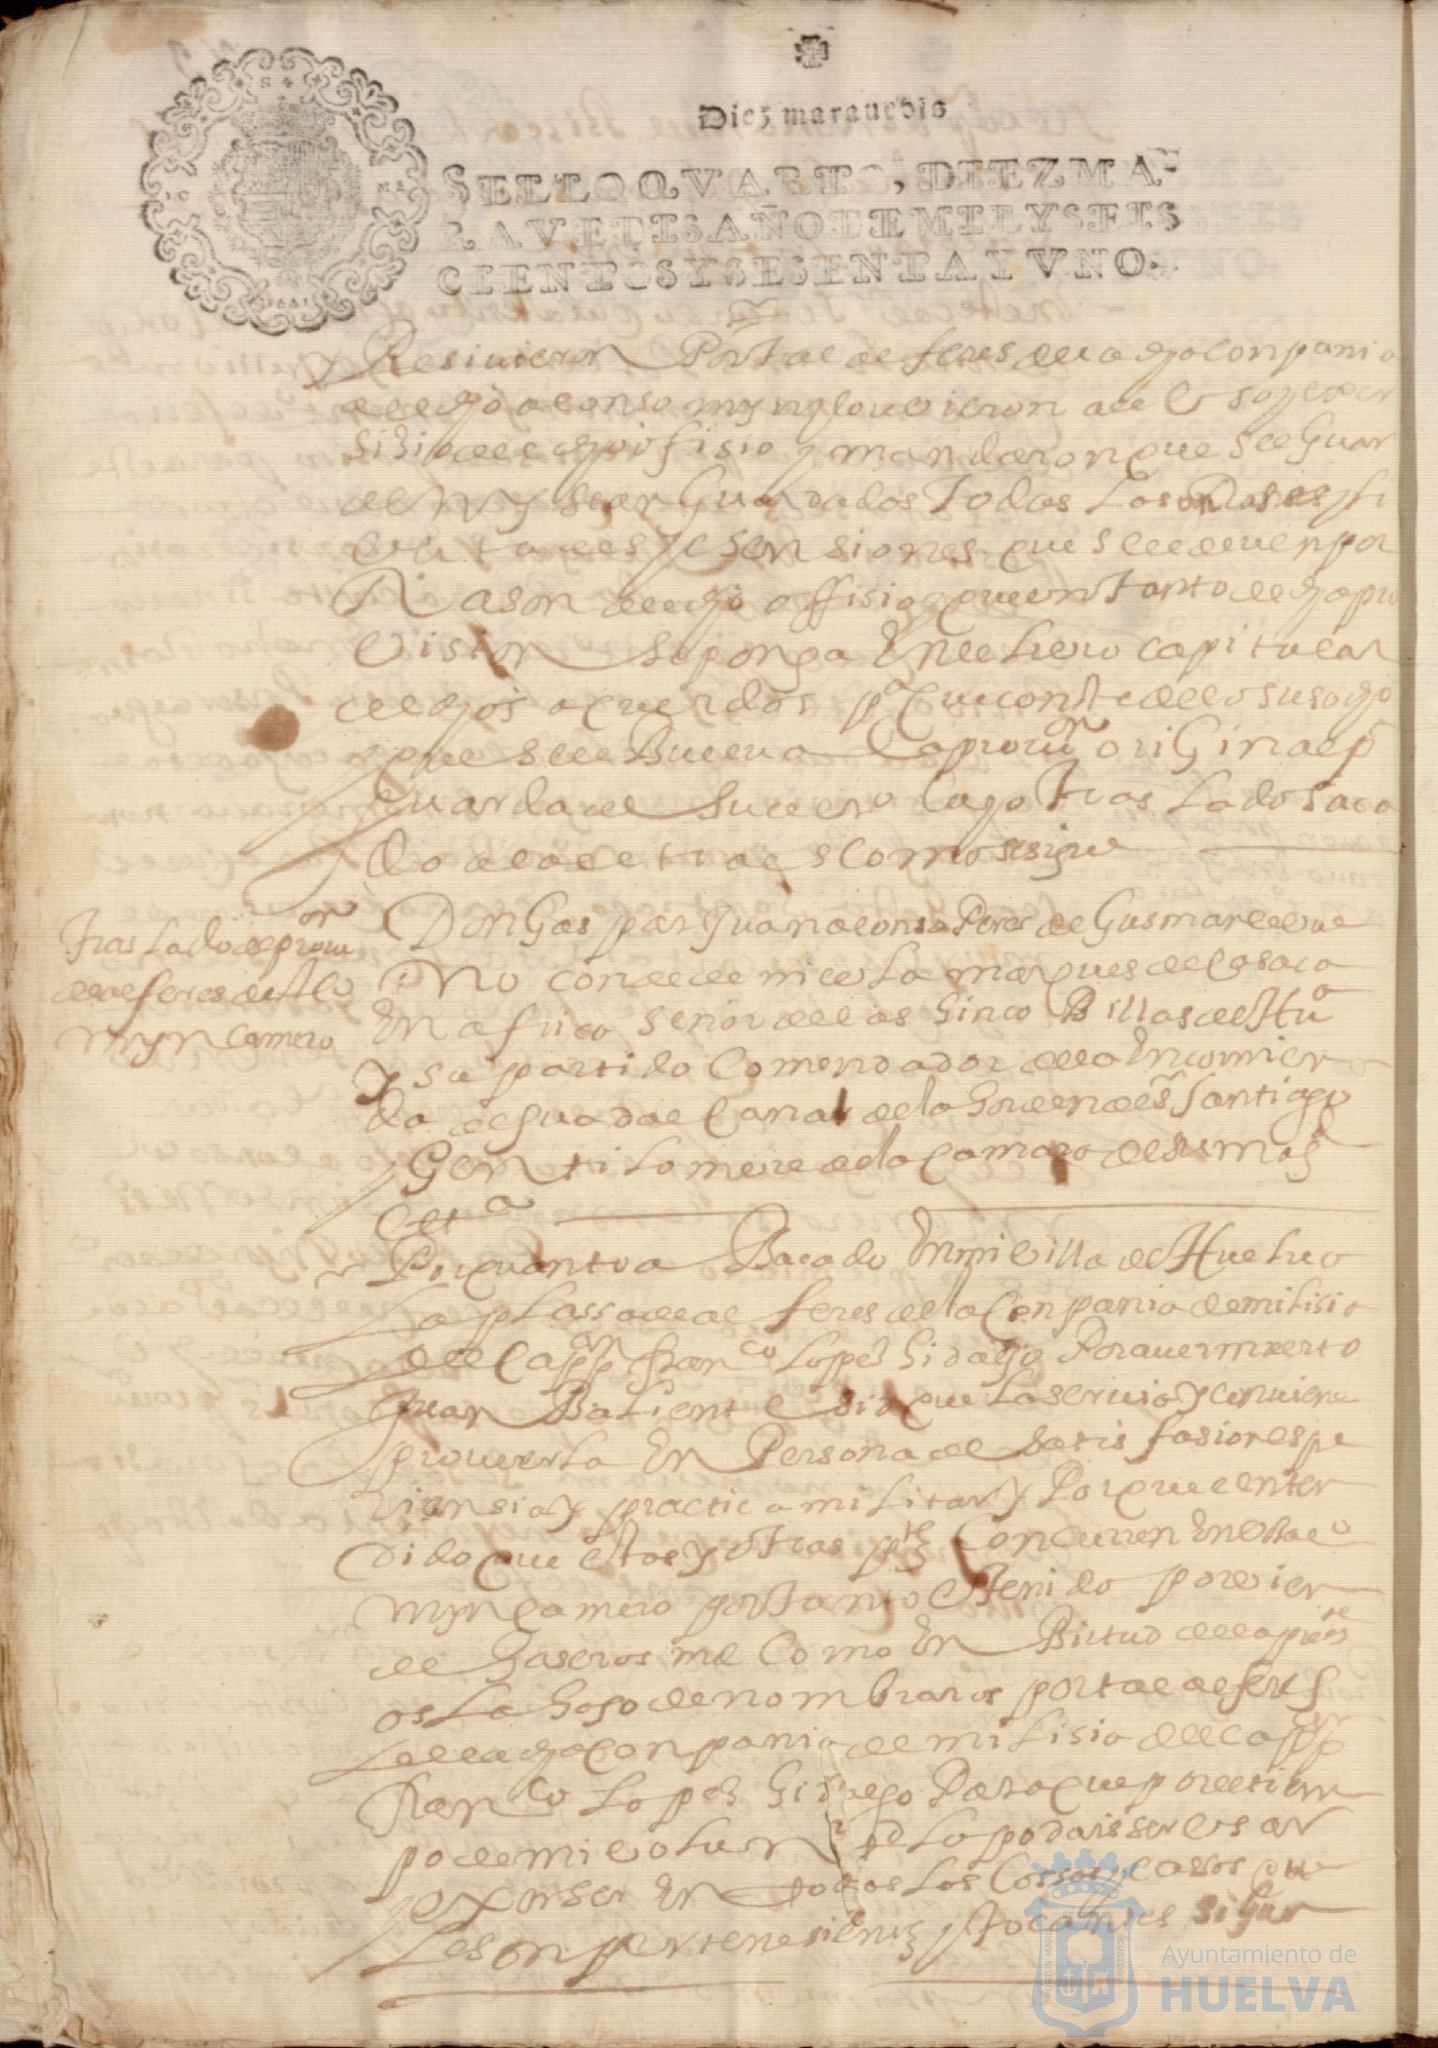 Diez marauedis
SELLO QVARTO, DIEZ MA-
RAVEDIS AÑO DE MIL Y SEIS
CIENTOS Y SESENTA Y VNO.
Resiuieron Por tal alferes de la dha conpania
al dho alonso myn y lo uvieron al uso y exer
sisio del dho offisio y mandaron que se le Guar
den y sean Guardados todos los onores y li
vertades y esensiones que se le deuen por
Rason del dho offisio y que un tanto de dha pro
vision se ponga En el livro capitular
de dhos acuerdos pa que conste de lo susodho
y que se le Buelva la provon original pa
Guarda de su dero cuyo traslado saca
do a la letra es como se sigue
Traslado de provon
de alferes de Alo
myn camero
Don Gaspar Juan alonso Peres de Gusman el vue
no conde de niebla marques de Casaca
En africa señor de las sinco Billas de Hua
y su partido Comendador de la Encomien
da de Guadalcanal de la horden de sr Santiago
Gentilonbre de la camara de su magd
etca
Por quanto a Bacado En mi villa de Huelva
La plassa de alferes de la Conpania de milisia
del Cappn franco Lopez hidalgo Por auer muerto
Juan Baliente que la servia y conviene
proverla En Persona de satisfasion espe
riensia y practica militar y Porque enten
dido que estas y otras ptes Concurren En Vos alo
myn camero por tanto E tenido por vien
de haseros md Como En Birtud de la prete
os la hago de nombraros por tal alferes
de la dha conpania de milisia del cappn
Franco Lopez hidalgo Para que por el tien
po de mi voluntd lo podais ser usar
y exerser En todos los Cossos y casos que
le son pertenesientes y tocantes Segun
Ayuntamiento de
HUELVA